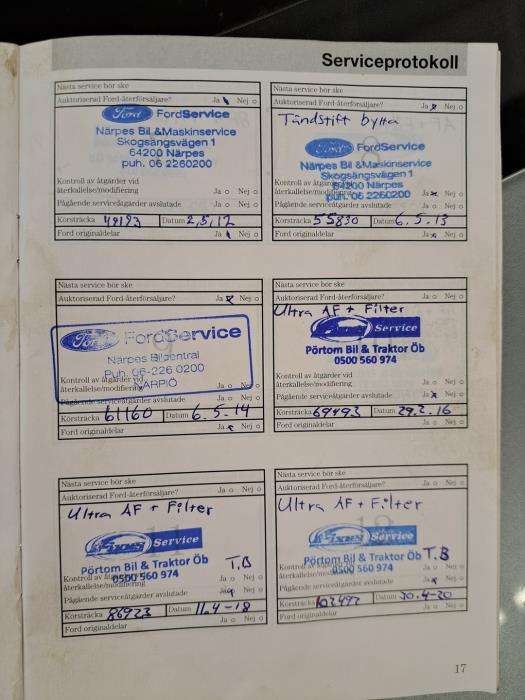 Serviceprotokoll
Nästa service bör ske
Auktoriserad Ford-återförsäljare? Ja Nej
Ford FordService
Närpes Bil &Maskinservice
Skogsängsvägen 1
64200 Närpes
puh. 06 2260200
Kontroll av åtgärder vid
återkallelse/modifiering Ja Nej
Pågående serviceåtgärder avslutade Ja Nej
Körsträcka 49193 Datum 2,5,12
Ford originaldelar Ja Nej
Nästa service bör ske
Auktoriserad Ford-återförsäljare? Ja Nej
Tändstift bytta
Ford FordService
Närpes Bil &Maskinservice
Skogsängsvägen 1
Kontroll av åtgärder vid 64200 Närpes
återkallelse/modifiering puh. 06 2260200 Ja Nej
Pågående serviceåtgärder avslutade Ja Nej
Körsträcka 55830 Datum 6.5.13
Ford originaldelar Ja Nej
Nästa service bör ske
Auktoriserad Ford-återförsäljare? Ja Nej
Ford FordService
Närpes Bilcentral
Puh. 06-226 0200
Kontroll av åtgärder vid
återkallelse/modifiering VARPIÖ Ja Nej
Pågående serviceåtgärder avslutade Ja Nej
Körsträcka 61160 Datum 6.5.14
Ford originaldelar Ja Nej
Nästa service bör ske
Auktoriserad Ford-återförsäljare? Ja Nej
Ultra AF + Filter
Fixus Service
Pörtom Bil & Traktor Öb
0500 560 974
Kontroll av åtgärder vid
återkallelse/modifiering Ja Nej
Pågående serviceåtgärder avslutade Ja Nej
Körsträcka 69493 Datum 29.2.16
Ford originaldelar Ja Nej
Nästa service bör ske
Auktoriserad Ford-återförsäljare? Ja Nej
Ultra AF + Filter
Fixus Service
Pörtom Bil & Traktor Öb T.B
Kontroll av åtgärder vid 0500 560 974
återkallelse/modifiering Ja Nej
Pågående serviceåtgärder avslutade Ja Nej
Körsträcka 86923 Datum 11.4-18
Ford originaldelar Ja Nej
Nästa service bör ske
Auktoriserad Ford-återförsäljare? Ja Nej
Ultra AF + Filter
Fixus Service
Pörtom Bil & Traktor Öb T.B
Kontroll av åtgärder vid 0500 560 974
återkallelse/modifiering Ja Nej
Pågående serviceåtgärder avslutade Ja Nej
Körsträcka 102492 Datum 30.4-20
Ford originaldelar Ja Nej
17